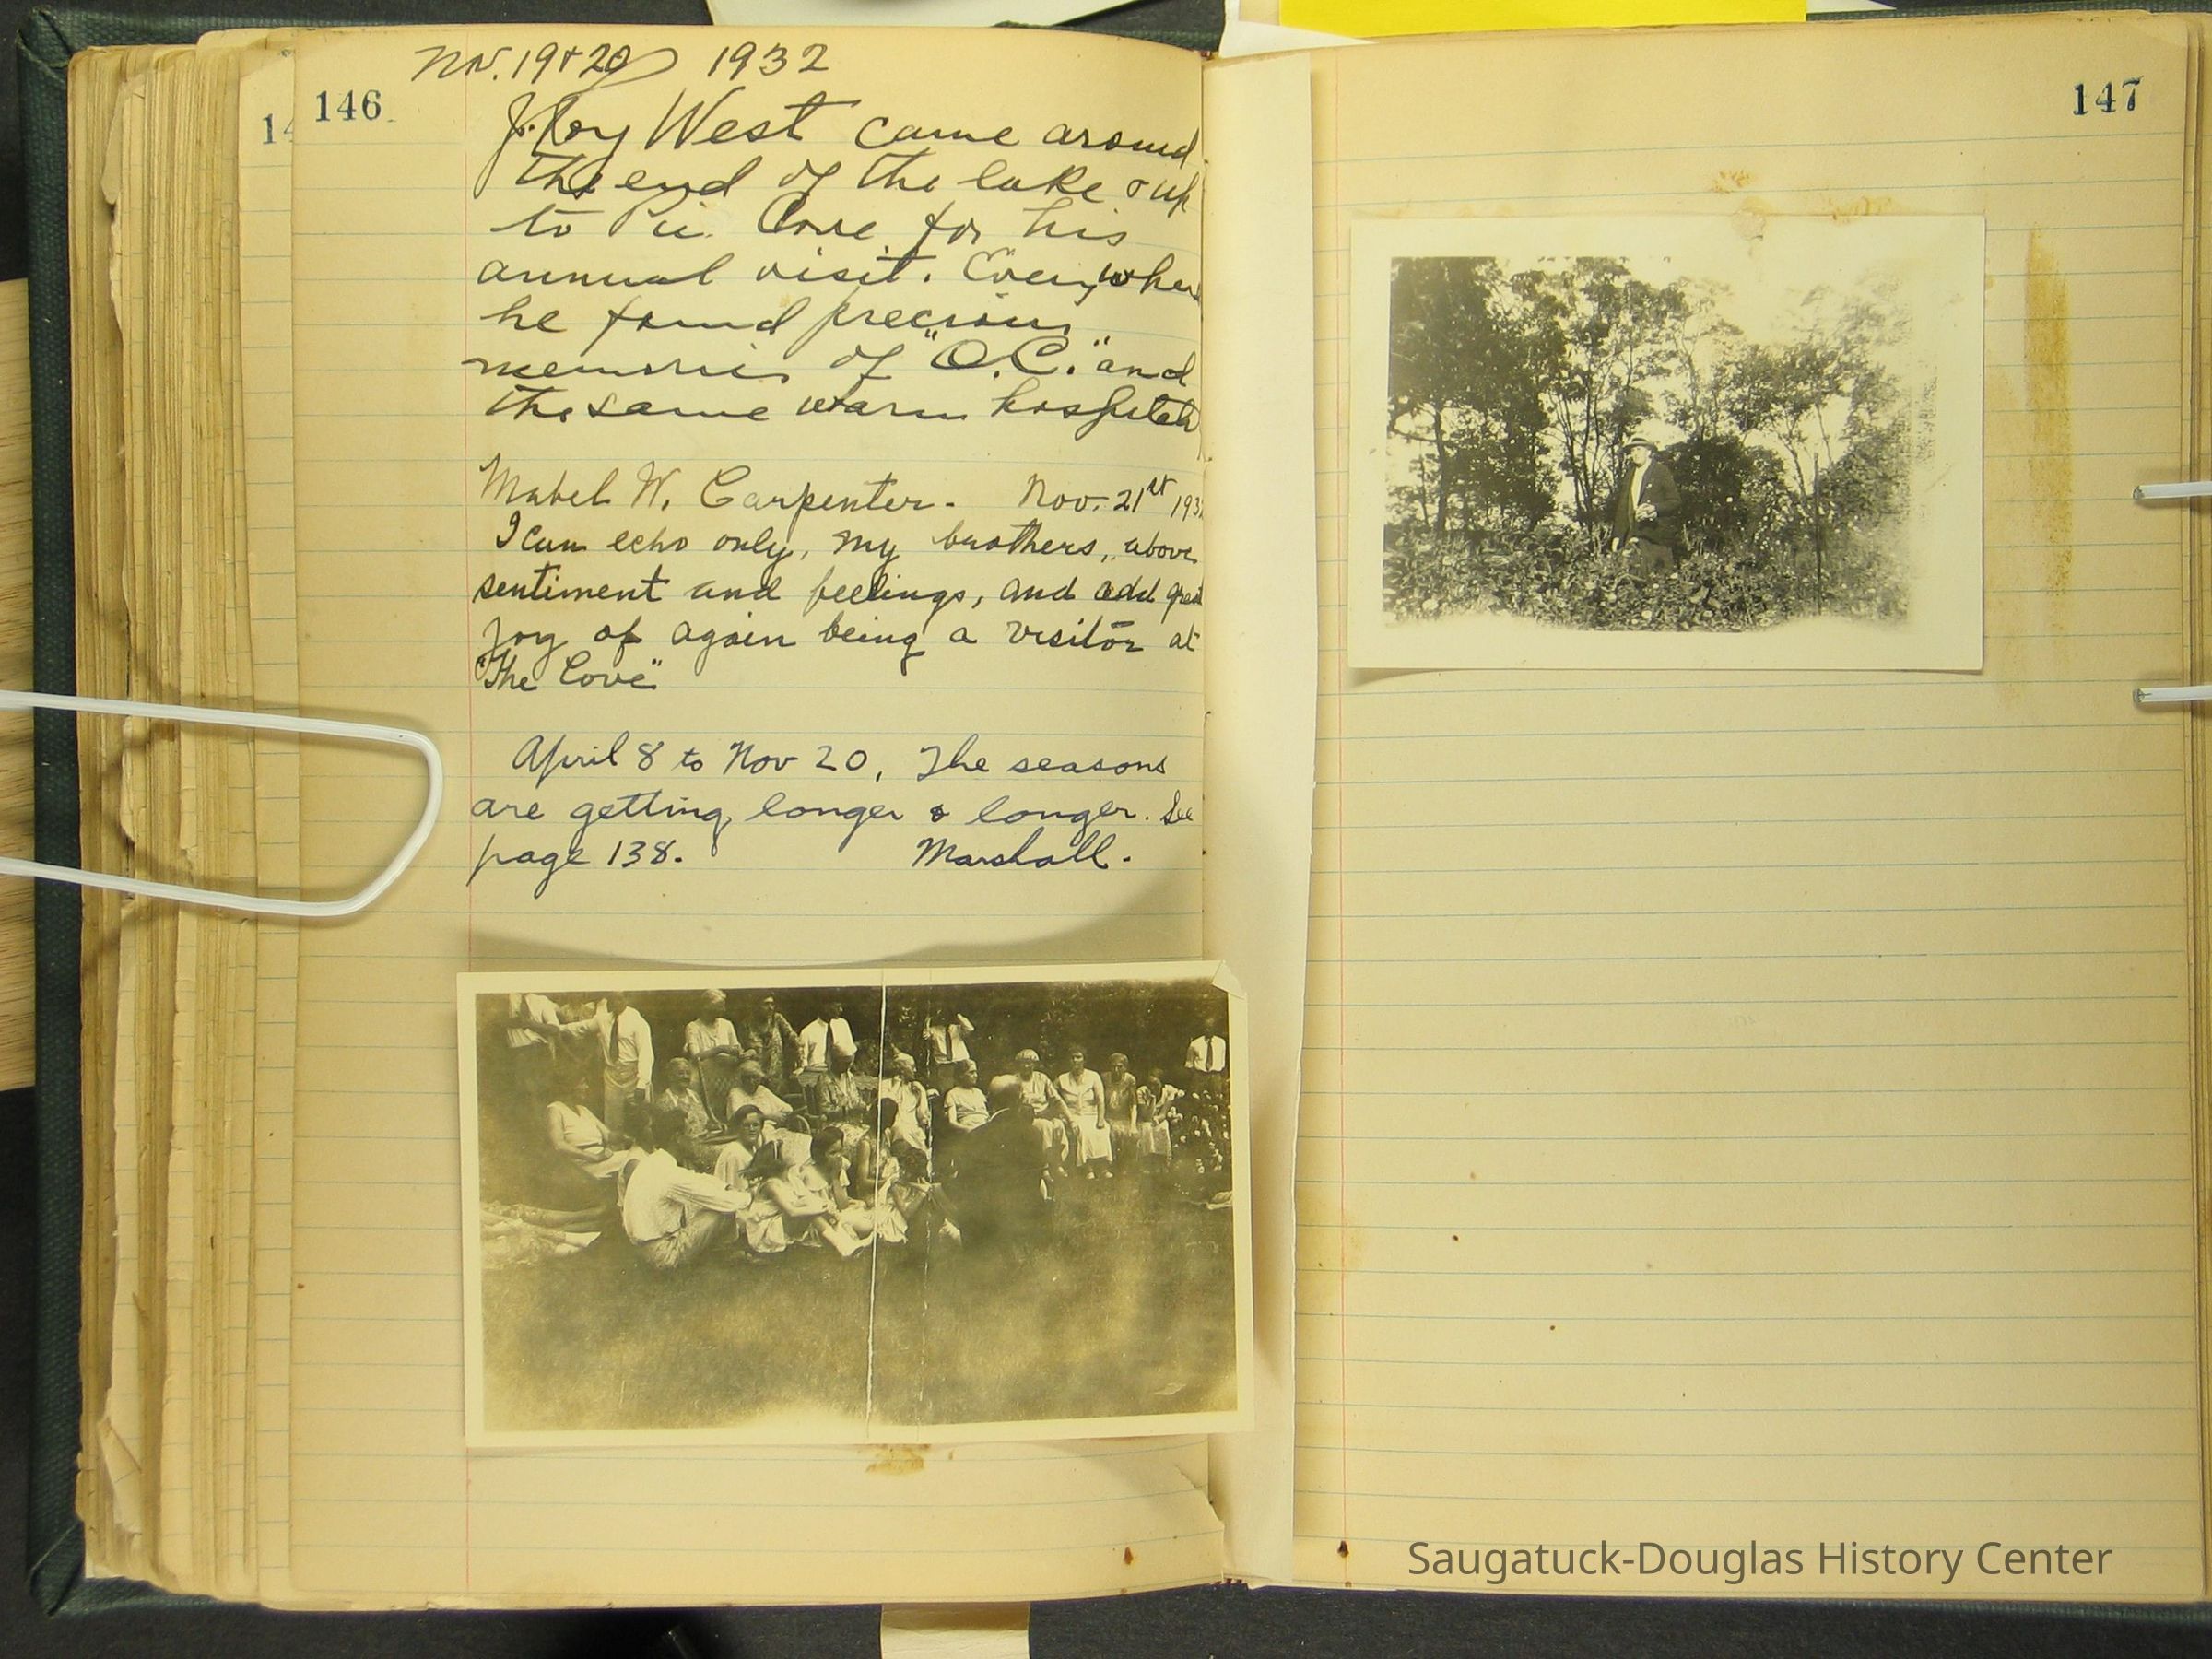 Nov. 19 & 20 1932
146
14
J. Roy West came around
the end of the lake & up
to Cove for his
annual visit. Everywhere
he found precious
memories of "O.C." and
the same warm
Mabel W. Carpenter. Nov. 21st 193
I can echo only, my brothers, above
sentiment and feelings, and add great
joy of again being a visitor at
"The Cove"
April 8 to Nov 20. The seasons
are getting longer & longer. See
page 138. Marshall.
147
Saugatuck-Douglas History Center